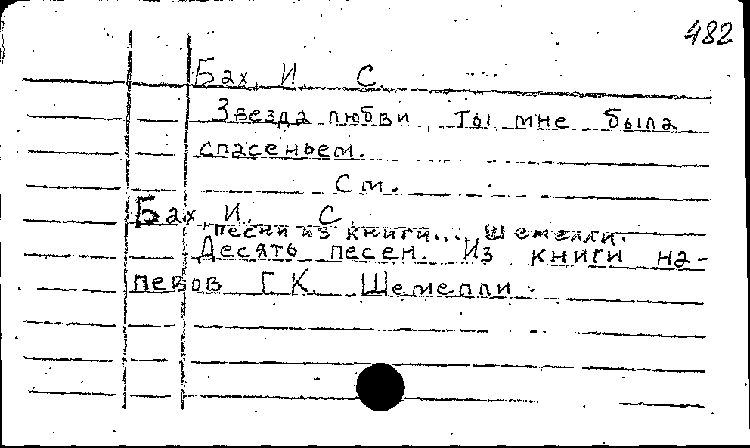 482
Бах, И. С.
Звезда любви, ты мне была
спасеньем.
См.
Бах, И. С.
песни из книги... Шемелли.
Десять песен. Из книги на-
певов Г. К. Шемелли.